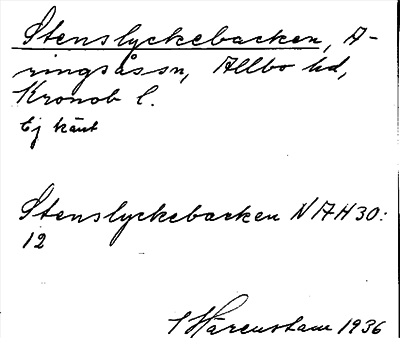 Stenslyckebacken, A-
ringsåssn, Allbo hd,
Kronob l.
Ej känt
Stenslyckebacken NAH30:
12
S Härenstam 1936